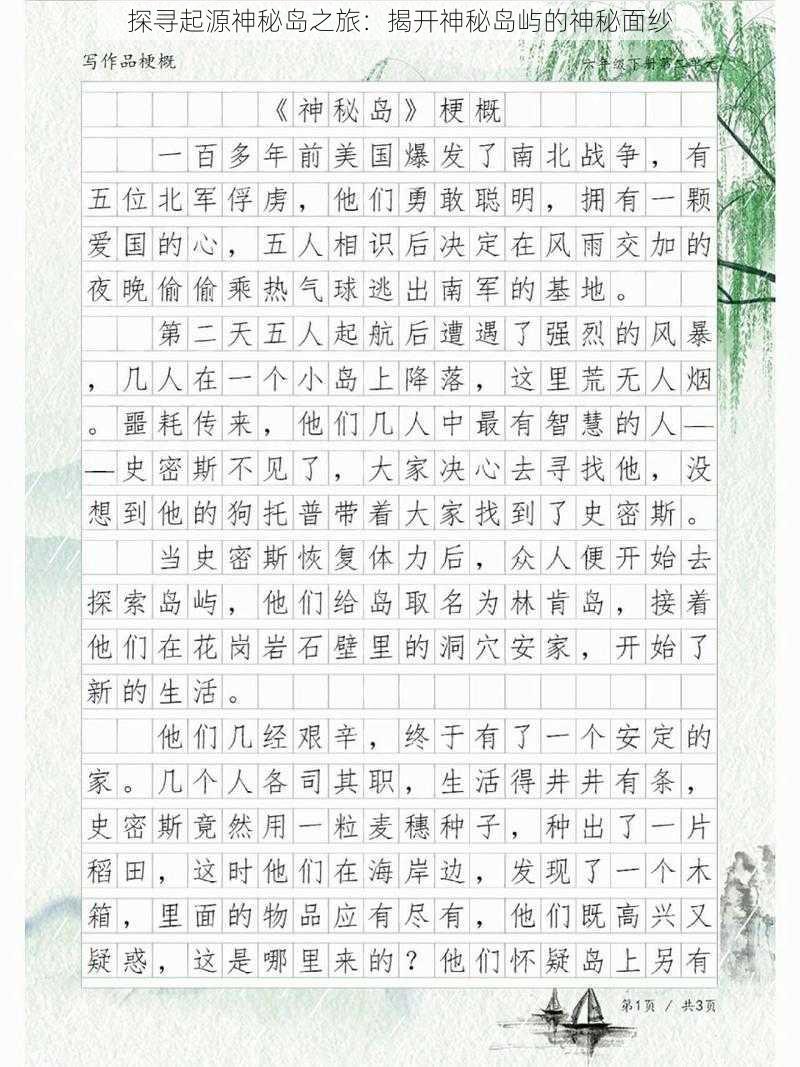 探寻起源神秘岛之旅：揭开神秘岛屿的神秘面纱
写作品梗概
六年级下册第二单元
《神秘岛》梗概
一百多年前美国爆发了南北战争，有
五位北军俘虏，他们勇敢聪明，拥有一颗
爱国的心，五人相识后决定在风雨交加的
夜晚偷偷乘热气球逃出南军的基地。
第二天五人起航后遭遇了强烈的风暴
，几人在一个小岛上降落，这里荒无人烟
。噩耗传来，他们几人中最有智慧的人—
—史密斯不见了，大家决心去寻找他，没
想到他的狗托普带着大家找到了史密斯。
当史密斯恢复体力后，众人便开始去
探索岛屿，他们给岛取名为林肯岛，接着
他们在花岗岩石壁里的洞穴安家，开始了
新的生活。
他们几经艰辛，终于有了一个安定的
家。几个人各司其职，生活得井井有条，
史密斯竟然用一粒麦穗种子，种出了一片
稻田，这时他们在海岸边，发现了一个木
箱，里面的物品应有尽有，他们既高兴又
疑惑，这是哪里来的？他们怀疑岛上另有
第1页 / 共3页